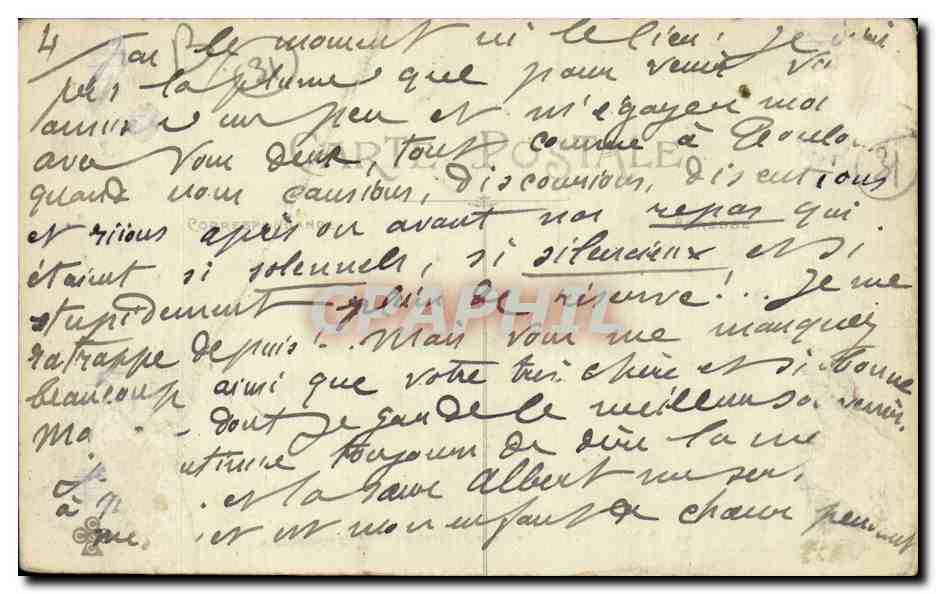 4 par le moment ni le lieu. Je
pris la plume que pour venir
un peu et m'égayer moi
avec vous deux, tout comme à Toulouse
quand nous causions, discourions, discutions
et riions après ou avant nos repas qui
étaient si solennels, si silencieux et si
stupidement plein de réserve! .. Je me
rattrappe depuis! .. Mais vous me manquez
beaucoup ainsi que votre très chère et si bonne
Ma - dont je garde le meilleur souvenir.
toujours de dire la me
à et la sœur Albert me sert
et est mon enfant de chœur pendant
CARTE POSTALE
CORRESPONDANCE
CPAPHIL
31
31